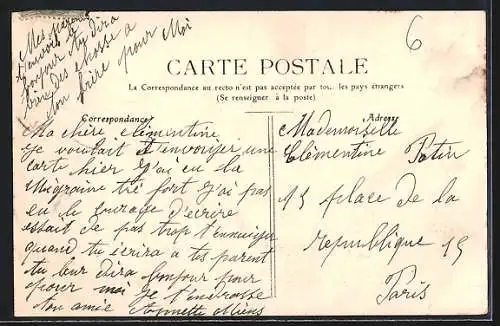 Mes parents
t'envoie le
bonjour tu dira
bien des chose a
ton frère pour Moi
6
CARTE POSTALE
La Correspondance au recto n'est pas acceptée par tous les pays étrangers
(Se renseigner à la poste)
Correspondance
Ma chère clémentine
Je voulait t'envoyer une
carte hier J'ai eu la
Migraine tré fort J'ai pas
eu le courage d'écrire
essait de pas trop t'ennuiyer
quand tu écrira a tes parent
tu leur dira bonjour pour
pour moi Je t'embrasse
ton amie Annette
Adresse
Mademoiselle
Clémentine Patin
15 place de la
republique 15
Paris